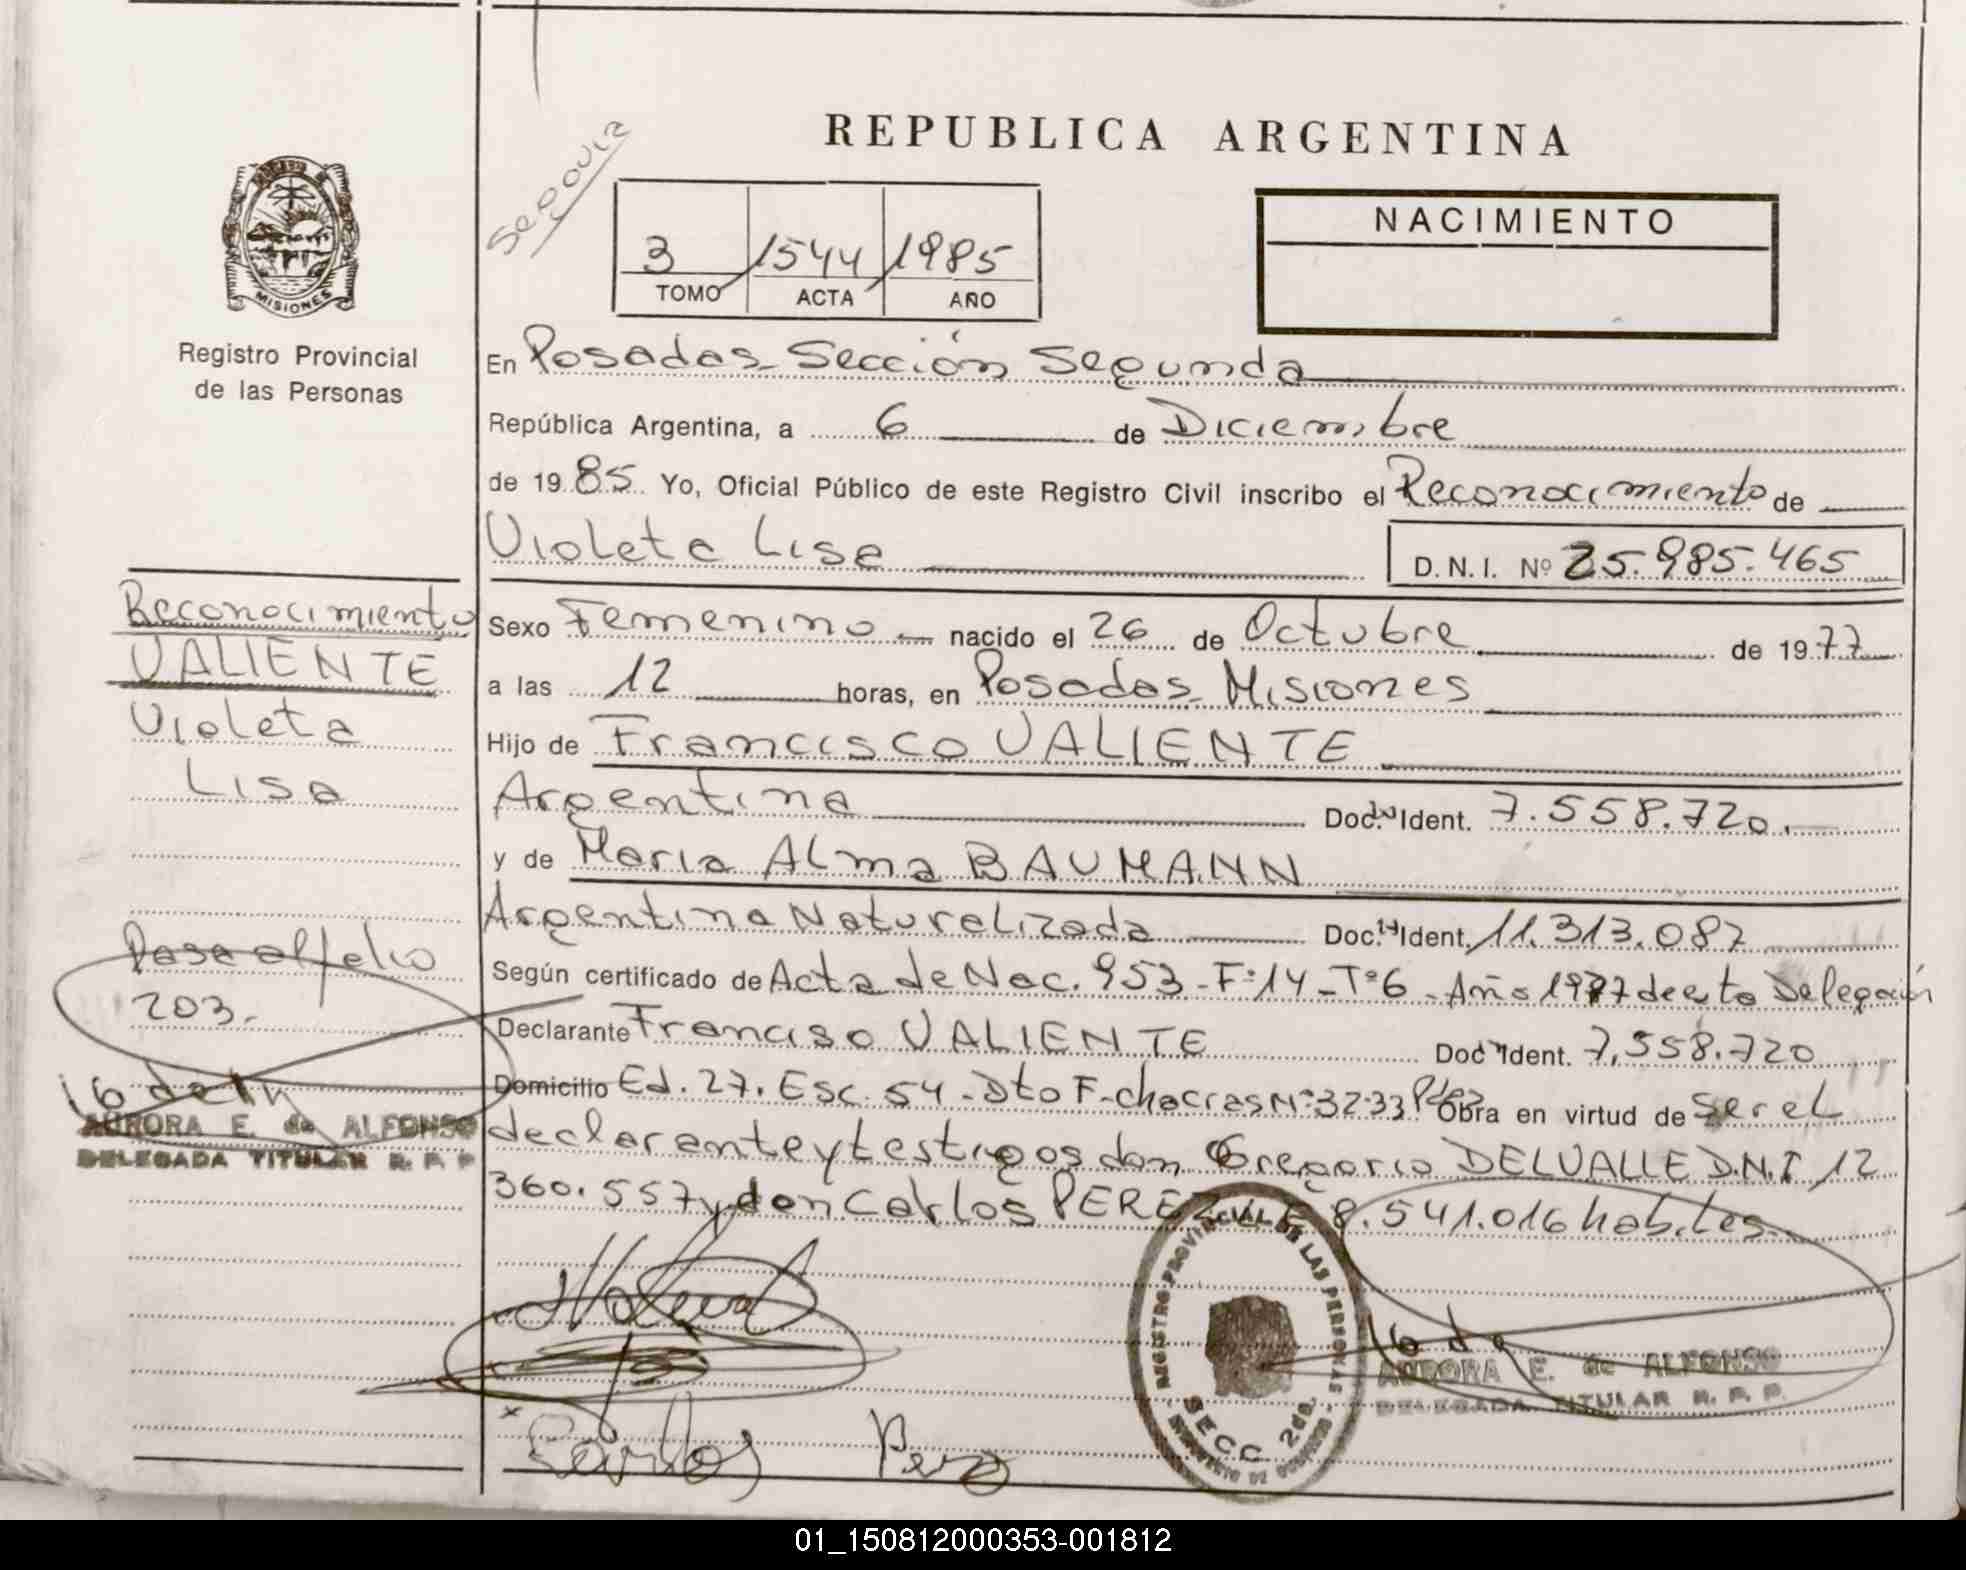 REPUBLICA ARGENTINA
Segovia
NACIMIENTO
3 1544 1985
TOMO ACTA AÑO
MISIONES
Registro Provincial
de las Personas
En Posadas Sección Segunda
República Argentina, a 6 de Diciembre
de 1985 Yo, Oficial Público de este Registro Civil inscribo el Reconocimiento de
Violeta Lisa D.N.I. Nº 25.985.465
Reconocimiento
VALIENTE
Violeta
Lisa
Sexo Femenino nacido el 26 de Octubre de 1977
a las 12 horas, en Posadas Misiones
Hijo de Francisco VALIENTE
Argentina Doc. Ident. 7.558.720.
y de Maria Alma BAUMANN
Argentina Naturalizada Doc. Ident. 11.313.087
Según certificado de Acta de Nac. 953 - Fº 14 - Tº 6 - Año 1977 de esta Delegación
Declarante Franciso VALIENTE Doc Ident. 7,558.720
Domicilio Ed. 27. Esc. 54 - Dto F - chacras Nº 32-33 Obra en virtud de Ser el
declarante y testigos don Gregorio DELVALLE D.N.I 12
360.557 y don Carlos PEREZ L E 8.541.016 habiles.
Pasa al folio
203.
AURORA E. de ALFONSO
DELEGADA TITULAR R. P. P.
REGISTRO PROVINCIAL DE LAS PERSONAS
SECC. 2da.
AURORA E. de ALFONSO
DELEGADA TITULAR R. P. P.
Carlos Perez
01_150812000353-001812